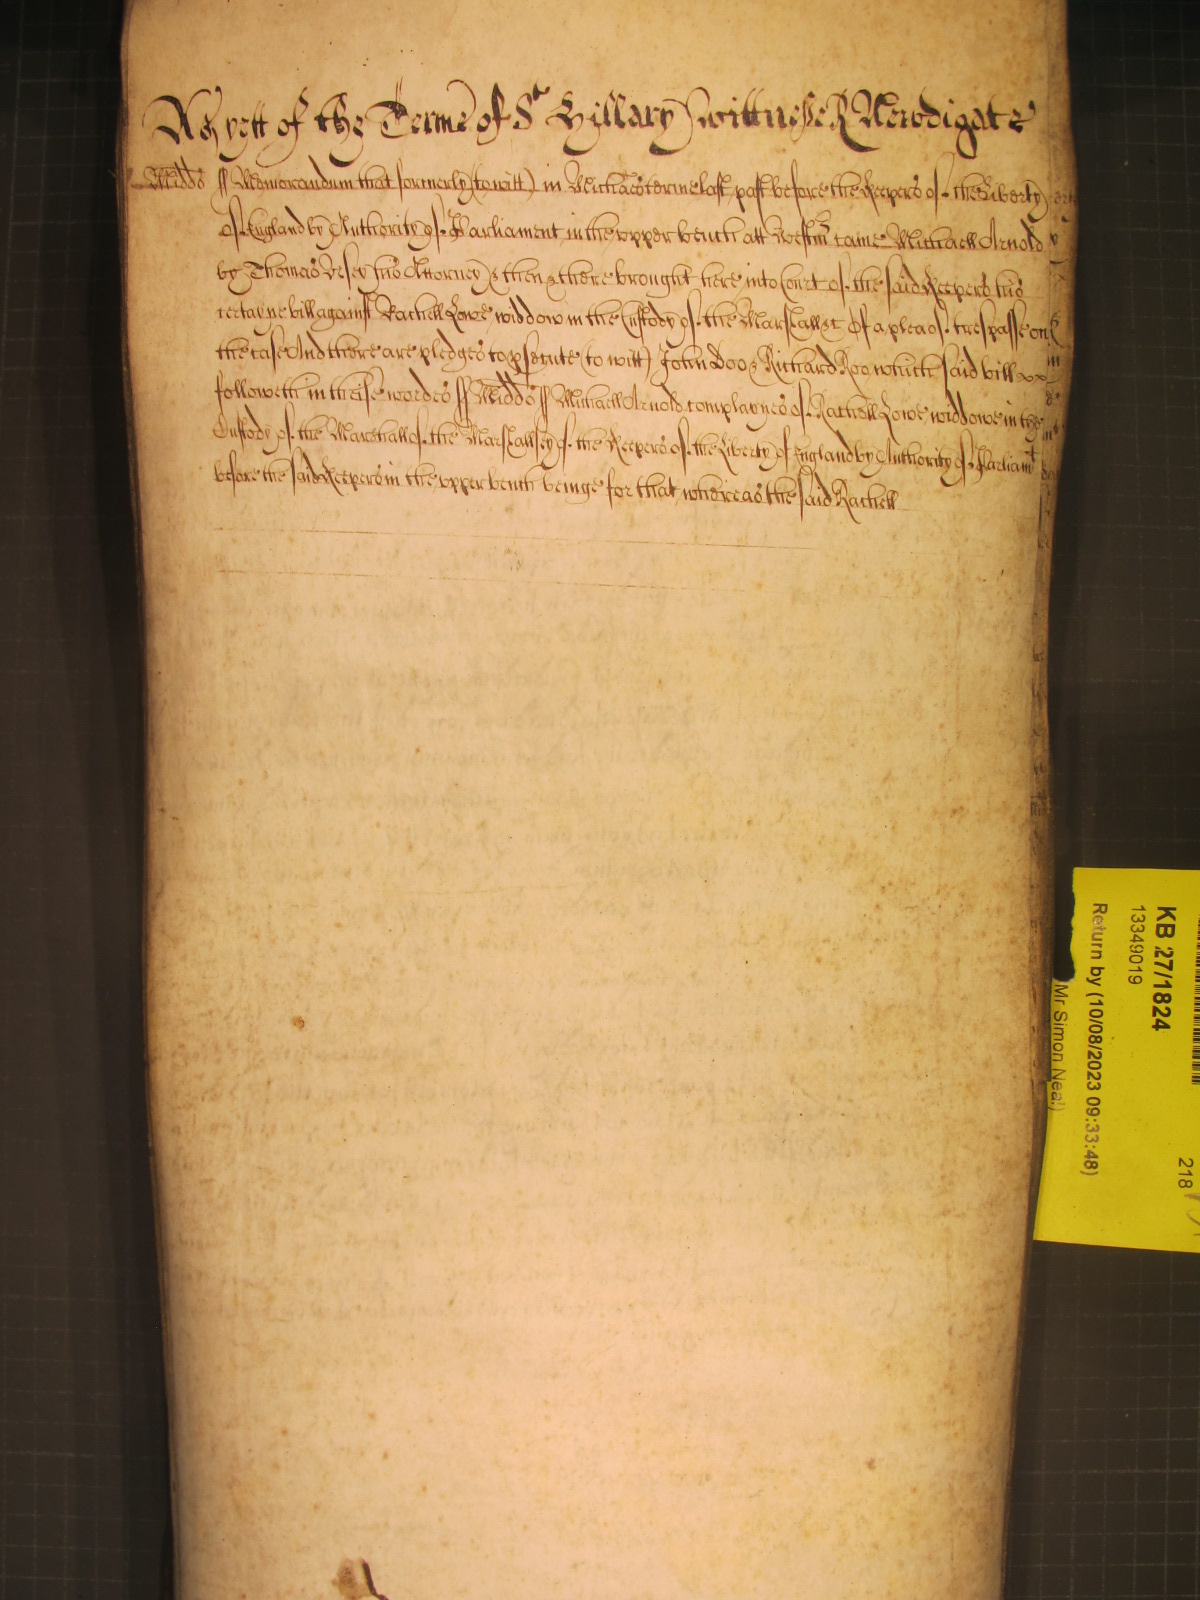 As yett of the Terme of St Hillary wittnesse R Newdigate
Midds ss Memorandum that formerly (to witt) in Michas terme last past before the Keepers of the Liberty
of England by Authority of Parliament in the upper bench att Westmr came Michaell Arnold
by Thomas Vesey his Attorney & then & there brought here into Court of the said Keepers his
certayne bill against Rachell Lowe widdow in the Custody of the Marshall &c Of a plea of trespasse on
the case And there are pledges to psecute (to witt) John Doo & Richard Roo which said bill
followeth in theise wordes ss Midds ss Michaell Arnold complaynes of Rachell Lowe widdowe in the
Custody of the Marshall of the Marshallsey of the Keepers of the Liberty of England by Authority of Parliamt
before the said Keepers in the upper bench beinge for that whereas the said Rachell
KB 27/1824
13349019
Return by (10/08/2023 09:33:48)
Mr Simon Neal)
218